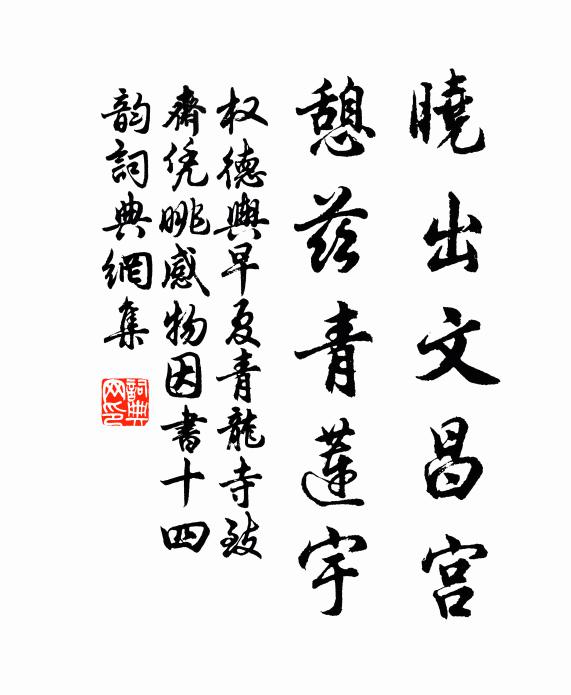 曉出文昌宮
憩茲青蓮宇
权德輿早夏青龍寺致
齋凭眺感物因書十四
韵詞典網集
詞典
网印